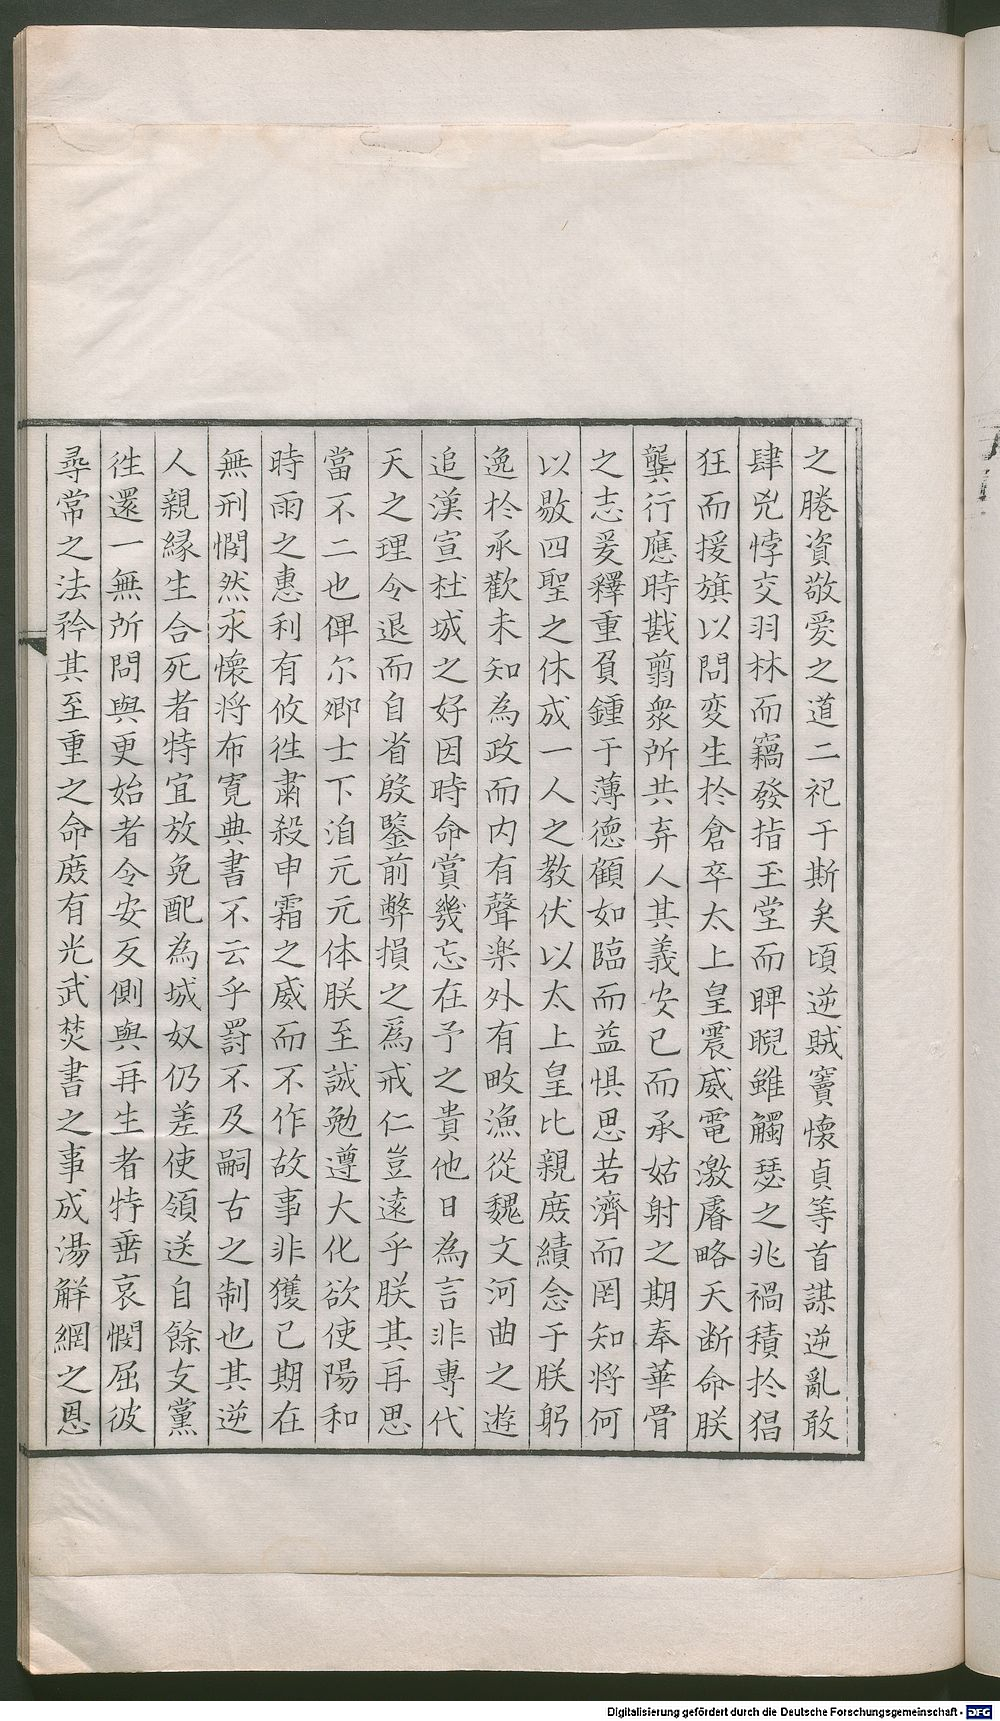 之勝資敬爱之道二祀于斯矣頃逆賊竇懷貞等首謀逆亂敢
肆兇悖交羽林而竊發指玉堂而睥睨雖觸瑟之兆禍積扵猖
狂而援旗以問変生扵倉卒太上皇震威電激睿略天断命朕
龔行應時戡翦衆所共弃人其義安已而承姑射之期奉華胥
之志爰釋重負鍾于薄徳顧如臨而益惧思若濟而罔知将何
以敭四聖之休成一人之教伏以太上皇比親庻績念于朕躬
逸扵承歡未知為政而内有聲楽外有畋漁從魏文河曲之遊
追漢宣杜城之好因時命賞幾忘在予之貴他日為言非專代
天之理令退而自省殷鑒前弊損之爲戒仁豈遠乎朕其再思
當不二也俾尔卿士下洎元元体朕至誠勉遵大化欲使陽和
時雨之惠利有攸徃肅殺申霜之威而不作故事非獲已期在
無刑憫然永懷将布寛典書不云乎罸不及嗣古之制也其逆
人親縁生合死者特宜放免配為城奴仍差使領送自餘支黨
徃還一無所問與更始者令安反側與再生者特垂哀憫屈彼
尋常之法矜其至重之命庻有光武焚書之事成湯解網之恩
Digitalisierung gefördert durch die Deutsche Forschungsgemeinschaft - DFG